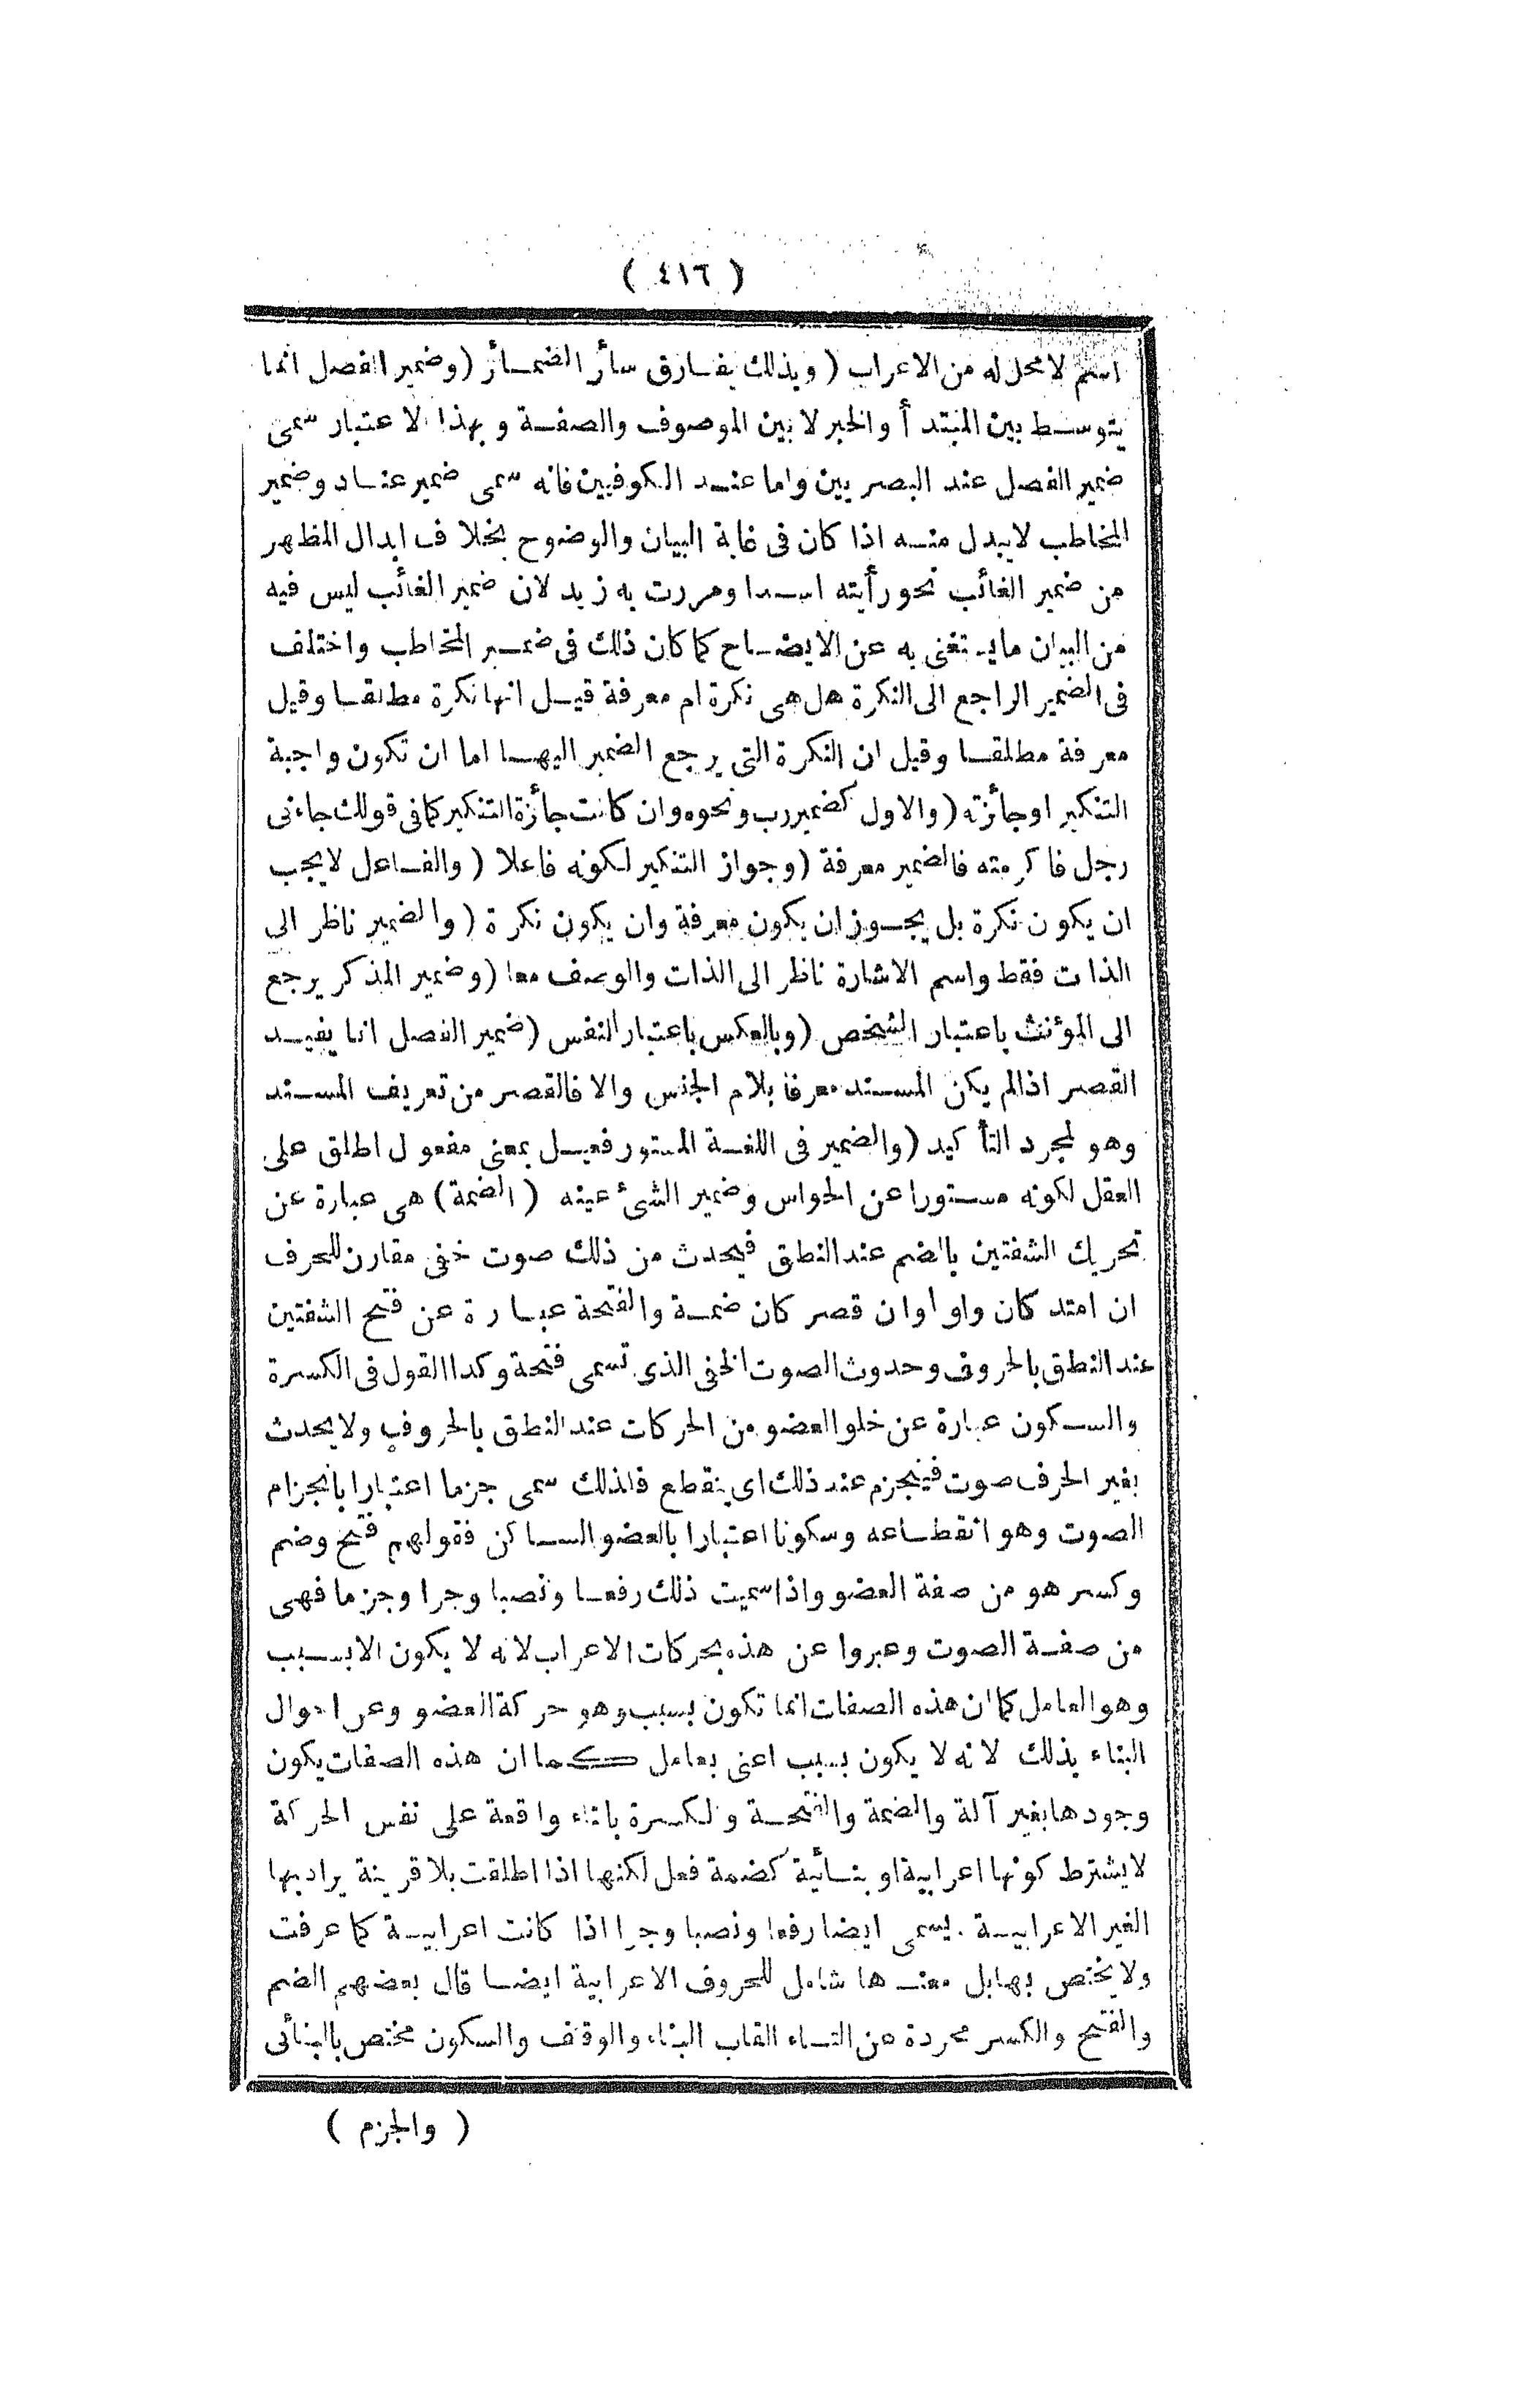 ( ٤١٦ )
اسم لا محل له من الاعراب ( وبذلك يفارق سائر الضمائر ( وضمير الفصل انما
يتوسط بين المبتدأ والخبر لا بين الموصوف والصفة وبهذا الاعتبار سمى
ضمير الفصل عند البصريين واما عند الكوفيين فانه سمى ضمير عناد وضمير
المخاطب لا يبدل منه اذا كان فى غاية البيان والوضوح بخلاف ابدال المظهر
من ضمير الغائب نحو رأيته اسدا ومررت به زيد لان ضمير الغائب ليس فيه
من البيان ما يستغنى به عن الايضاح كما كان ذلك فى ضمير المخاطب واختلف
فى الضمير الراجع الى النكرة هل هى نكرة ام معرفة قيل انها نكرة مطلقا وقيل
معرفة مطلقا وقيل ان النكرة التى يرجع الضمير اليها اما ان تكون واجبة
التنكير او جائزته ( والاول كضمير رب ونحوه وان كانت جائزة التنكير كما فى قولك جاءنى
رجل فاكرمته فالضمير معرفة ( وجواز التنكير لكونه فاعلا ( والفاعل لا يجب
ان يكون نكرة بل يجوز ان يكون معرفة وان يكون نكرة ( والضمير ناظر الى
الذات فقط واسم الاشارة ناظر الى الذات والوصف معا ( وضمير المذكر يرجع
الى المؤنث باعتبار الشخص ( وبالعكس باعتبار النفس ( ضمير الفصل انا يفيد
القصر اذا لم يكن المسند معرفا بلام الجنس والا فالقصر من تعريف المسند
وهو لمجرد التأكيد ( والضمير فى اللغة المستور فعيل بمعنى مفعول اطلق على
العقل لكونه مستورا عن الحواس وضمير الشئ عينه ( الضمة ) هى عبارة عن
تحريك الشفتين بالضم عند النطق فيحدث من ذلك صوت خفى مقارن للحرف
ان امتد كان واوا وان قصر كان ضمة والفتحة عبارة عن فتح الشفتين
عند النطق بالحروف وحدوث الصوت الخفى الذى تسمى فتحة وكدا القول فى الكسرة
والسكون عبارة عن خلو العضو من الحركات عند النطق بالحروف ولا يحدث
بغير الحرف صوت فينجزم عند ذلك اى ينقطع فلذلك سمى جزما اعتبارا بانجزام
الصوت وهو انقطاعه وسكونا اعتبارا بالعضو الساكن فقولهم فتح وضم
وكسر هو من صفة العضو واذا سميت ذلك رفعا ونصبا وجرا وجزما فهى
من صفة الصوت وعبروا عن هذه بحركات الاعراب لانه لا يكون الا بسبب
وهو العامل كما ان هذه الصفات انما تكون بسبب وهو حركة العضو وعن احوال
البناء بذلك لانه لا يكون بسبب اعنى بعامل كما ان هذه الصفات يكون
وجودها بغير آلة والضمة والفتحة والكسرة بالتاء واقعة على نفس الحركة
لا يشترط كونها اعرابية او بنائية كضمة فعل لكنها اذا اطلقت بلا قرينة يراد بها
الغير الاعرابية . يسمى ايضا رفعا ونصبا وجرا اذا كانت اعرابية كما عرفت
ولا يختص بها بل معناها شامل للحروف الاعرابية ايضا قال بعضهم الضم
والفتح والكسر مجردة عن التاء القاب البناء والوقف والسكون مختص بالبنائى
( والجزم )